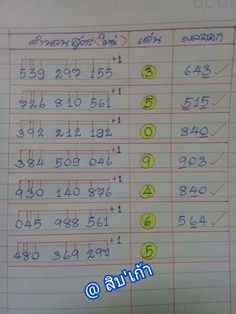 คำนวนสูตร <ใหม่> เด่น ผลออก
+1
539 297 155 3 643 ✓
+1
726 810 561 5 515 ✓
392 212 192 0 840 ✓
+1
384 509 046 9 903 ✓
+1
930 140 876 4 840 ✓
+1
045 988 561 6 564 ✓
+1
480 369 297 5
@ สิบ'เก้า